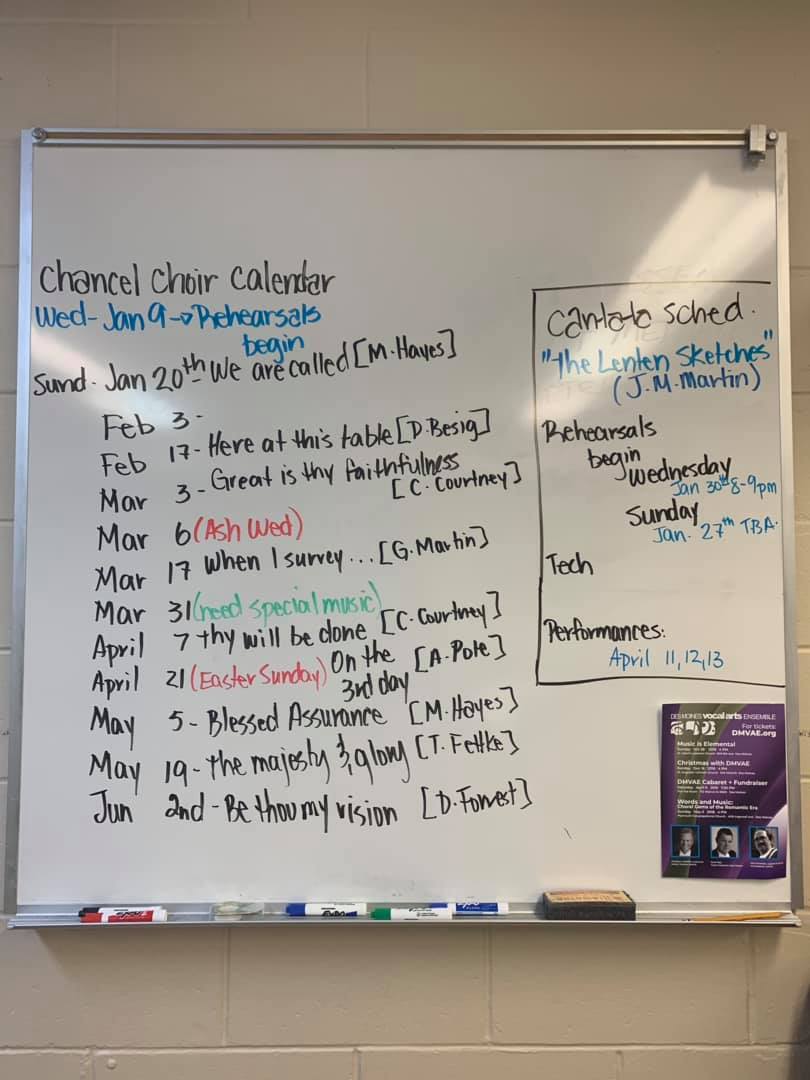 Chancel Choir Calendar
Wed-Jan 9→Rehearsals
begin
Sund. Jan 20th We are called [M. Hayes]
Feb 3-
Feb 17- Here at this table [D. Besig]
Mar 3- Great is thy faithfulness
[C. Courtney]
Mar 6 (Ash Wed)
Mar 17 When I survey... [G. Martin]
Mar 31 (need special music)
April 7 thy will be done [C. Courtney]
April 21 (Easter Sunday) On the [A. Pote]
3rd day
May 5- Blessed Assurance [M. Hayes]
May 19- the majesty & glory [T. Fettke]
Jun 2nd- Be thou my vision [D. Forrest]
Cantata Sched.
"The Lenten Sketches"
(J.M. Martin)
Rehearsals
begin
Wednesday
Jan 30th 8-9pm
Sunday
Jan. 27th TBA.
Tech
Performances:
April 11, 12, 13
DES MOINES vocal arts ENSEMBLE
For tickets:
DMVAE.org
Music is Elemental
Christmas with DMVAE
DMVAE Cabaret + Fundraiser
Words and Music:
Choral Gems of the Romantic Era
EXPO